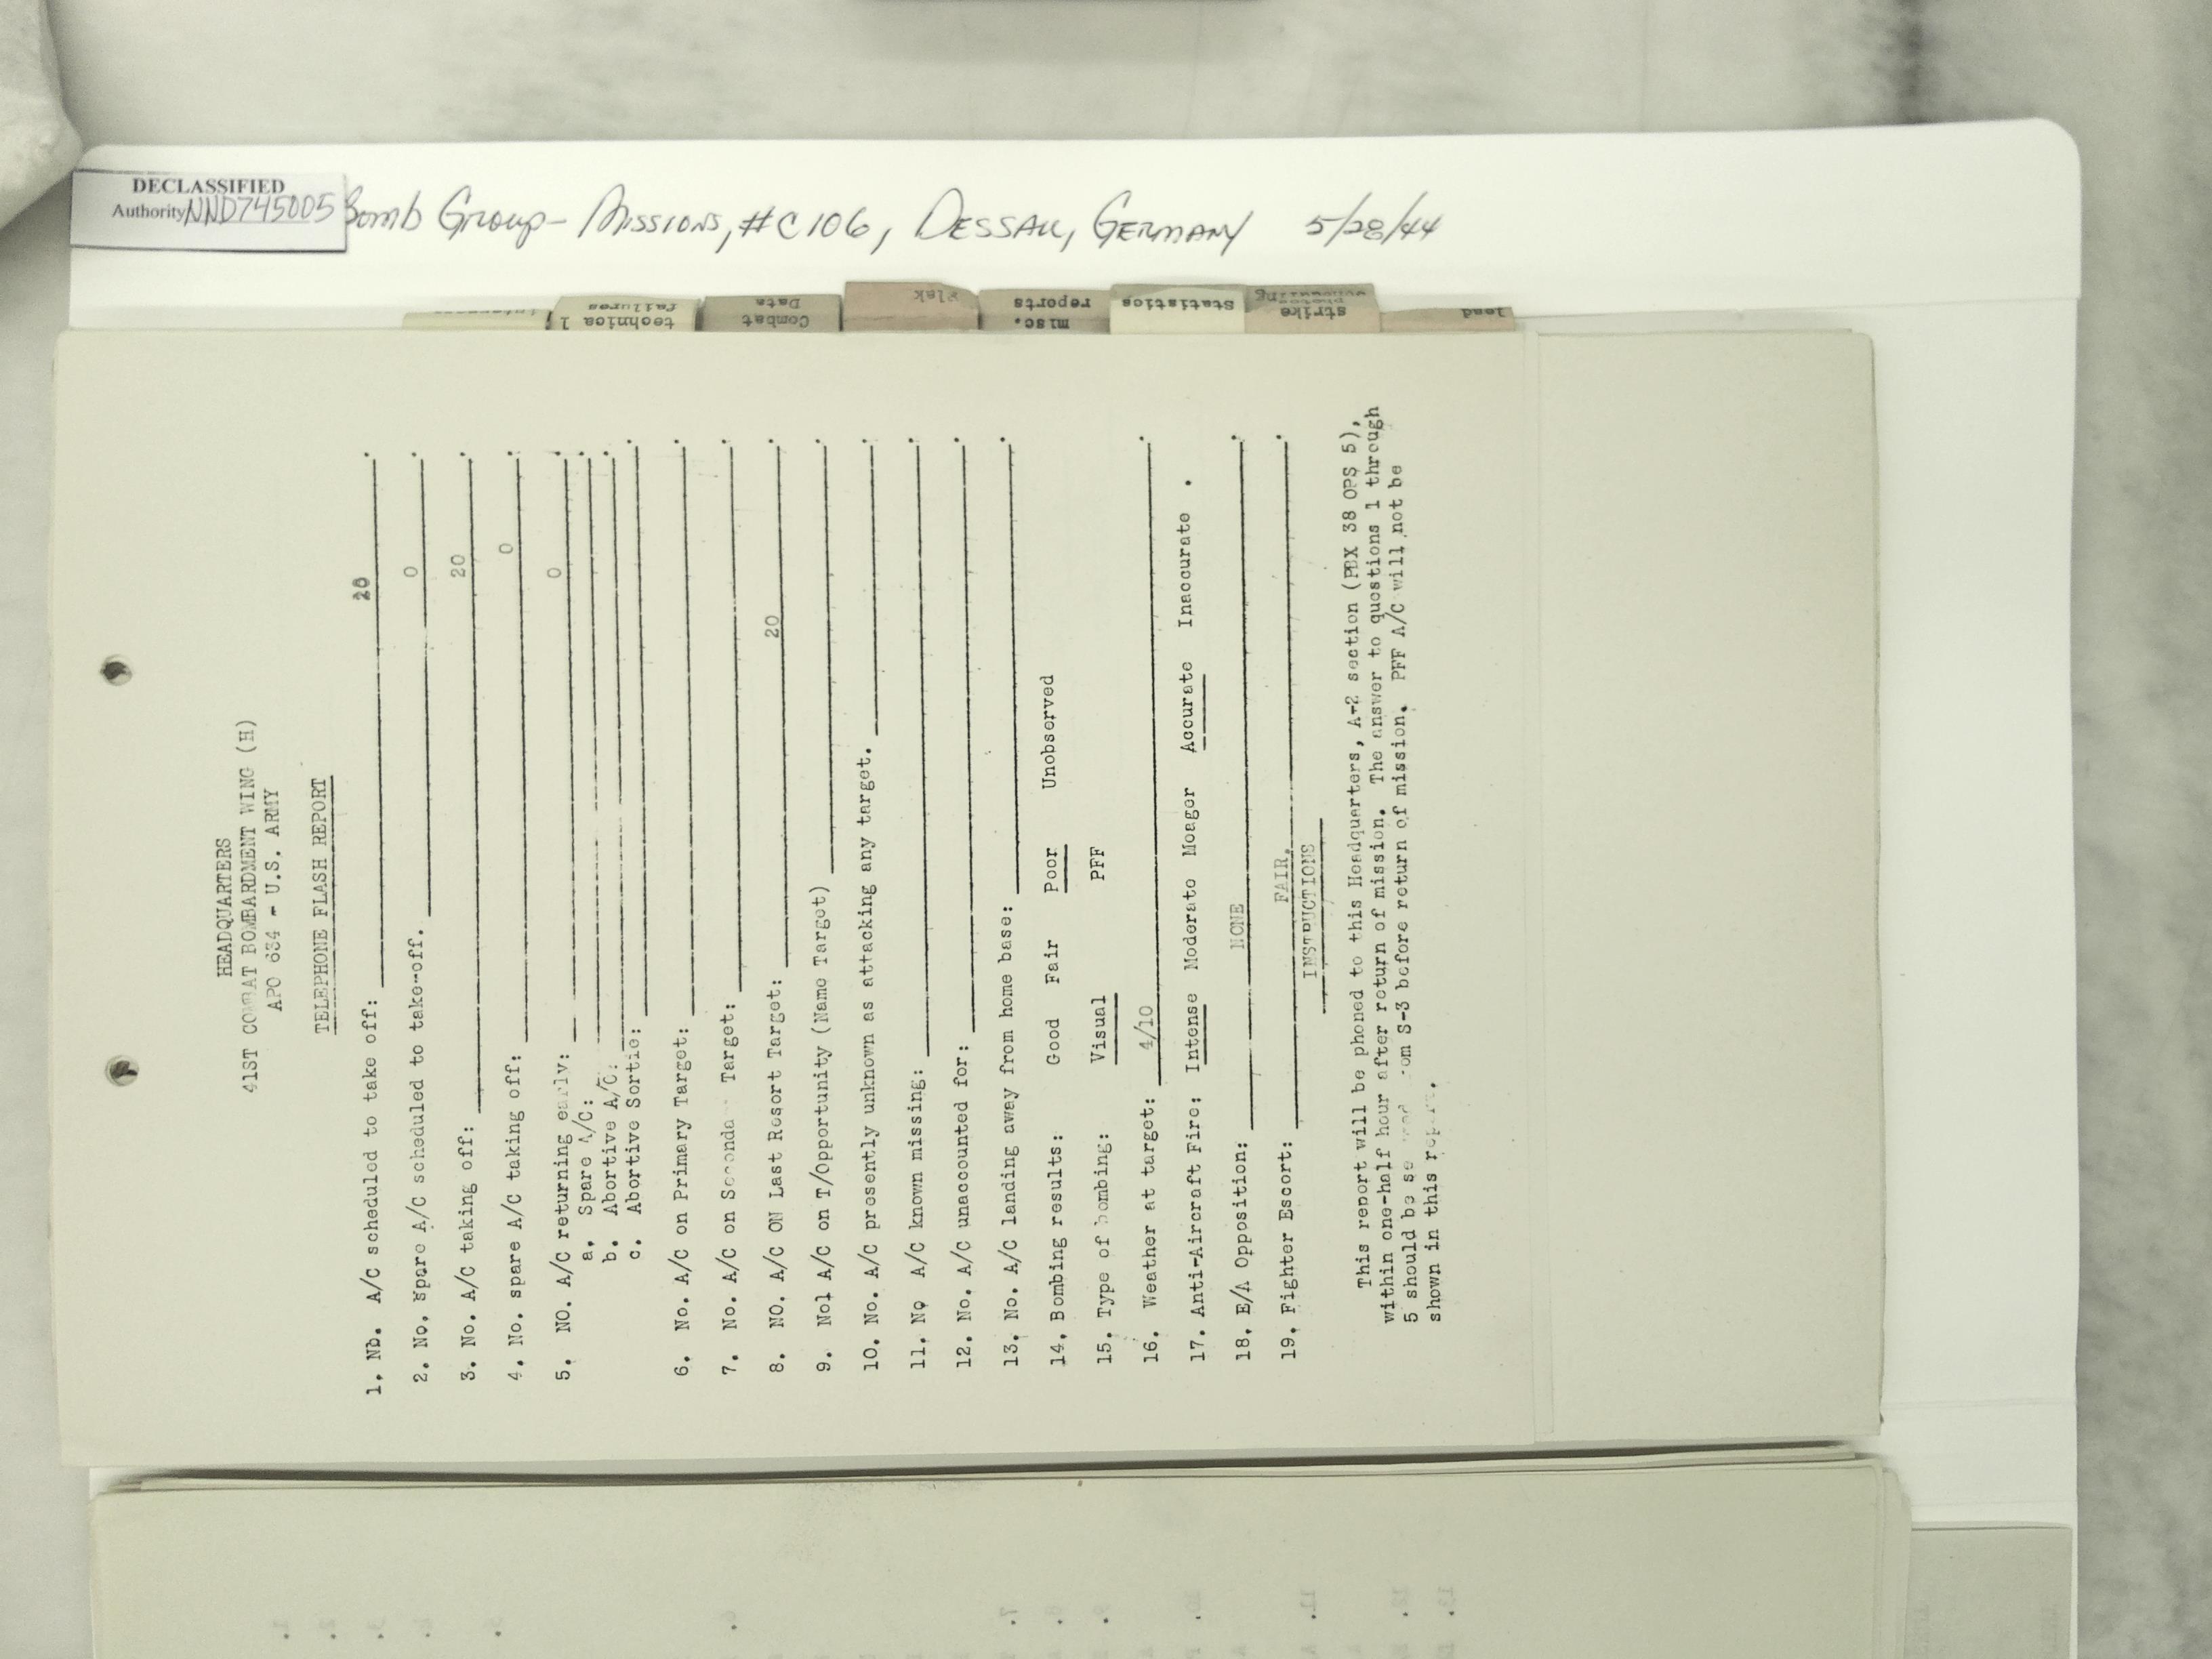 DECLASSIFIED
Authority NND745005
Bomb Group - Missions, #C106, Dessau, Germany 5/28/44
technical
failures
Combat
Data
Flak
misc.
reports
Statistics
strike
photos
lead
HEADQUARTERS
41ST COMBAT BOMBARDMENT WING (H)
APO 634 - U.S. ARMY
TELEPHONE FLASH REPORT
1. Nb. A/C scheduled to take off: 20.
2. No. Spare A/C scheduled to take-off. 0.
3. No. A/C taking off: 20.
4. No. spare A/C taking off: 0.
5. NO. A/C returning early: 0.
a. Spare A/C: .
b. Abortive A/C: .
c. Abortive Sortie: .
6. No. A/C on Primary Target: .
7. No. A/C on Seconda Target: .
8. NO. A/C ON Last Resort Target: 20.
9. Nol A/C on T/Opportunity (Name Target) .
10. No. A/C presently unknown as attacking any target. .
11. No A/C known missing: .
12. No. A/C unaccounted for: .
13. No. A/C landing away from home base: .
14. Bombing results: Good Fair Poor Unobserved
15. Type of bombing: Visual PFF
16. Weather at target: 4/10.
17. Anti-Aircraft Fire: Intense Moderate Meager Accurate Inaccurate.
18. E/A Opposition: NONE.
19. Fighter Escort: FAIR.
INSTRUCTIONS
This report will be phoned to this Headquarters, A-2 section (PBX 38 OPS 5),
within one-half hour after return of mission. The answer to questions 1 through
5 should be S-3 before return of mission. PFF A/C will not be
shown in this report.